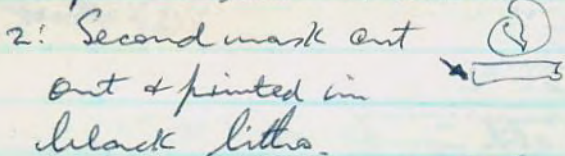 2: Second mask cut
out & printed in
black litho.